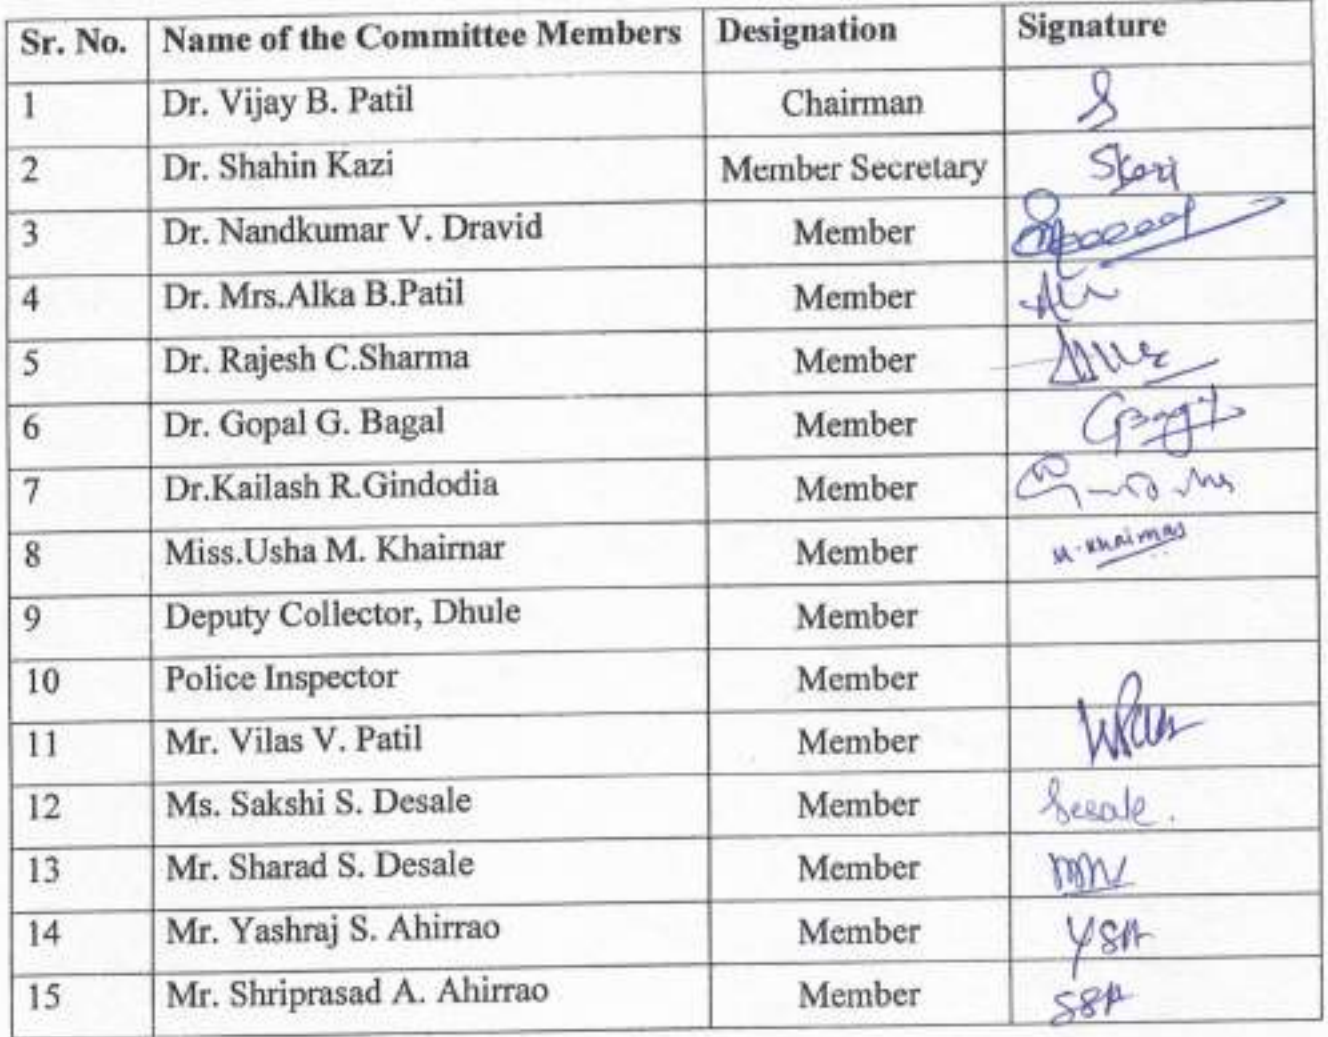 Sr. No. Name of the Committee Members Designation Signature
1 Dr. Vijay B. Patil Chairman
2 Dr. Shahin Kazi Member Secretary
3 Dr. Nandkumar V. Dravid Member
4 Dr. Mrs.Alka B.Patil Member
5 Dr. Rajesh C.Sharma Member
6 Dr. Gopal G. Bagal Member
7 Dr.Kailash R.Gindodia Member
8 Miss.Usha M. Khairnar Member
9 Deputy Collector, Dhule Member
10 Police Inspector Member
11 Mr. Vilas V. Patil Member
12 Ms. Sakshi S. Desale Member Desale.
13 Mr. Sharad S. Desale Member
14 Mr. Yashraj S. Ahirrao Member YSA
15 Mr. Shriprasad A. Ahirrao Member